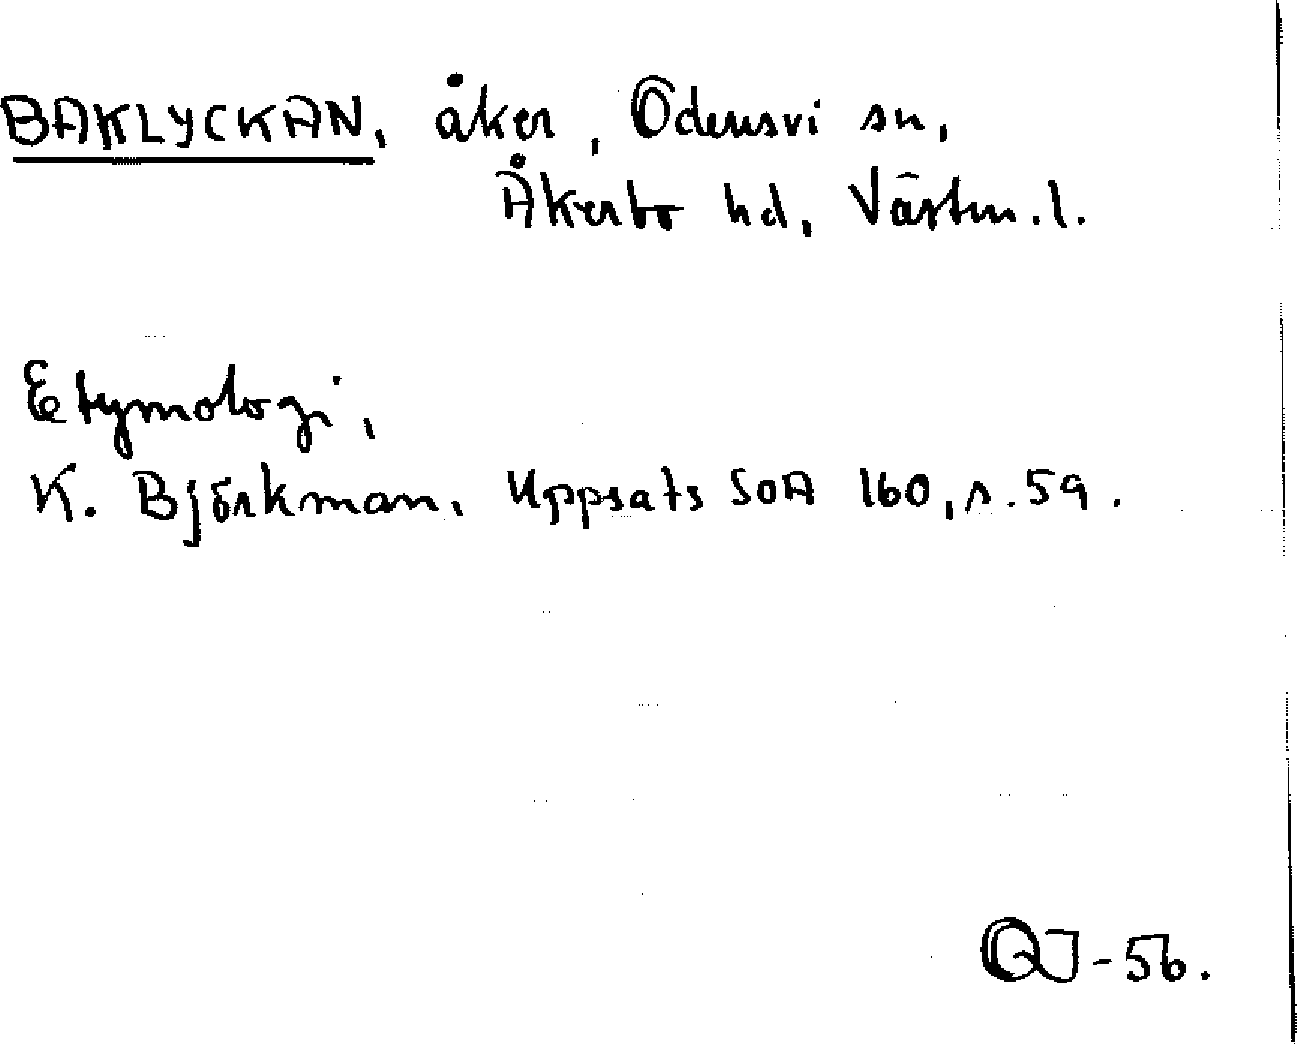 BAKLYCKAN, åker, Odensvi sn,
Åkerbo hd, Västm.l.
Etymologi,
K. Björkman, Uppsats SOA 160, s. 59.
OJ-56.